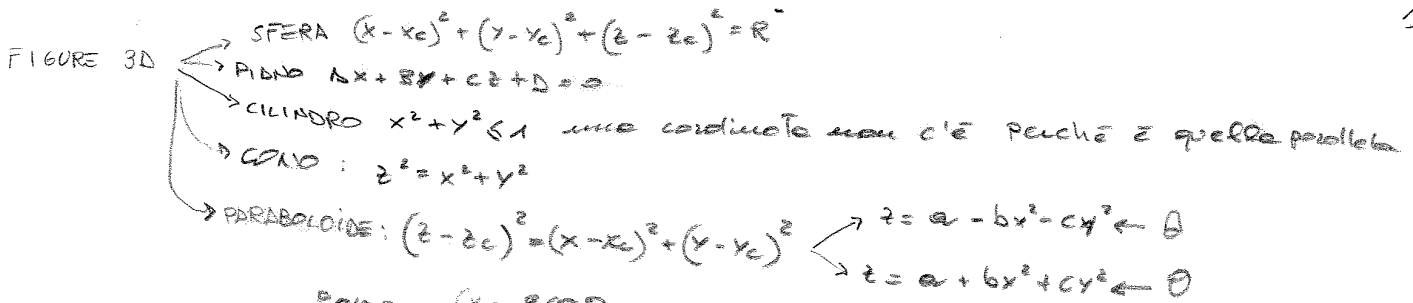 FIGURE 3D
SFERA (x-xc)² + (y-yc)² + (z-zc)² = R
PIANO Ax + By + cz + D = 0
CILINDRO x² + y² ≤ 1 una cordinata non c'è perché è quella parallela
CONO: z² = x² + y²
PARABOLOIDE: (z-zc)² = (x-xc)² + (y-yc)²
z = a - bx² - cy² ←
z = a + bx² + cy² ←